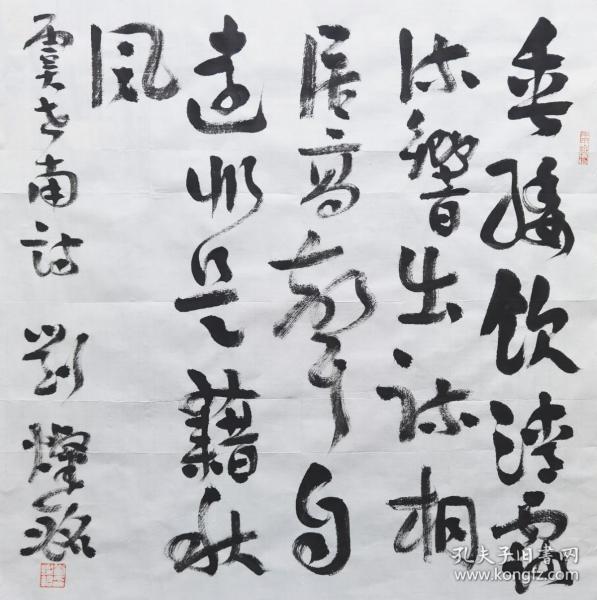 垂緌饮清露
流響出疎桐
居高聲自
遠非是藉秋
風
虞世南诗 劉燦銘
孔夫子旧书网
www.kongfz.com